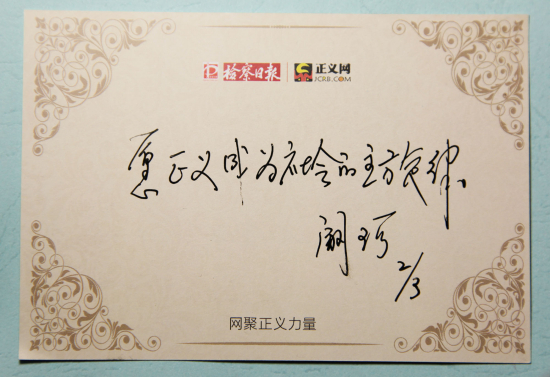 检察日报 正义网
JCRB.COM
愿正义成为社会的主旋律
阚珂
2/3
网聚正义力量